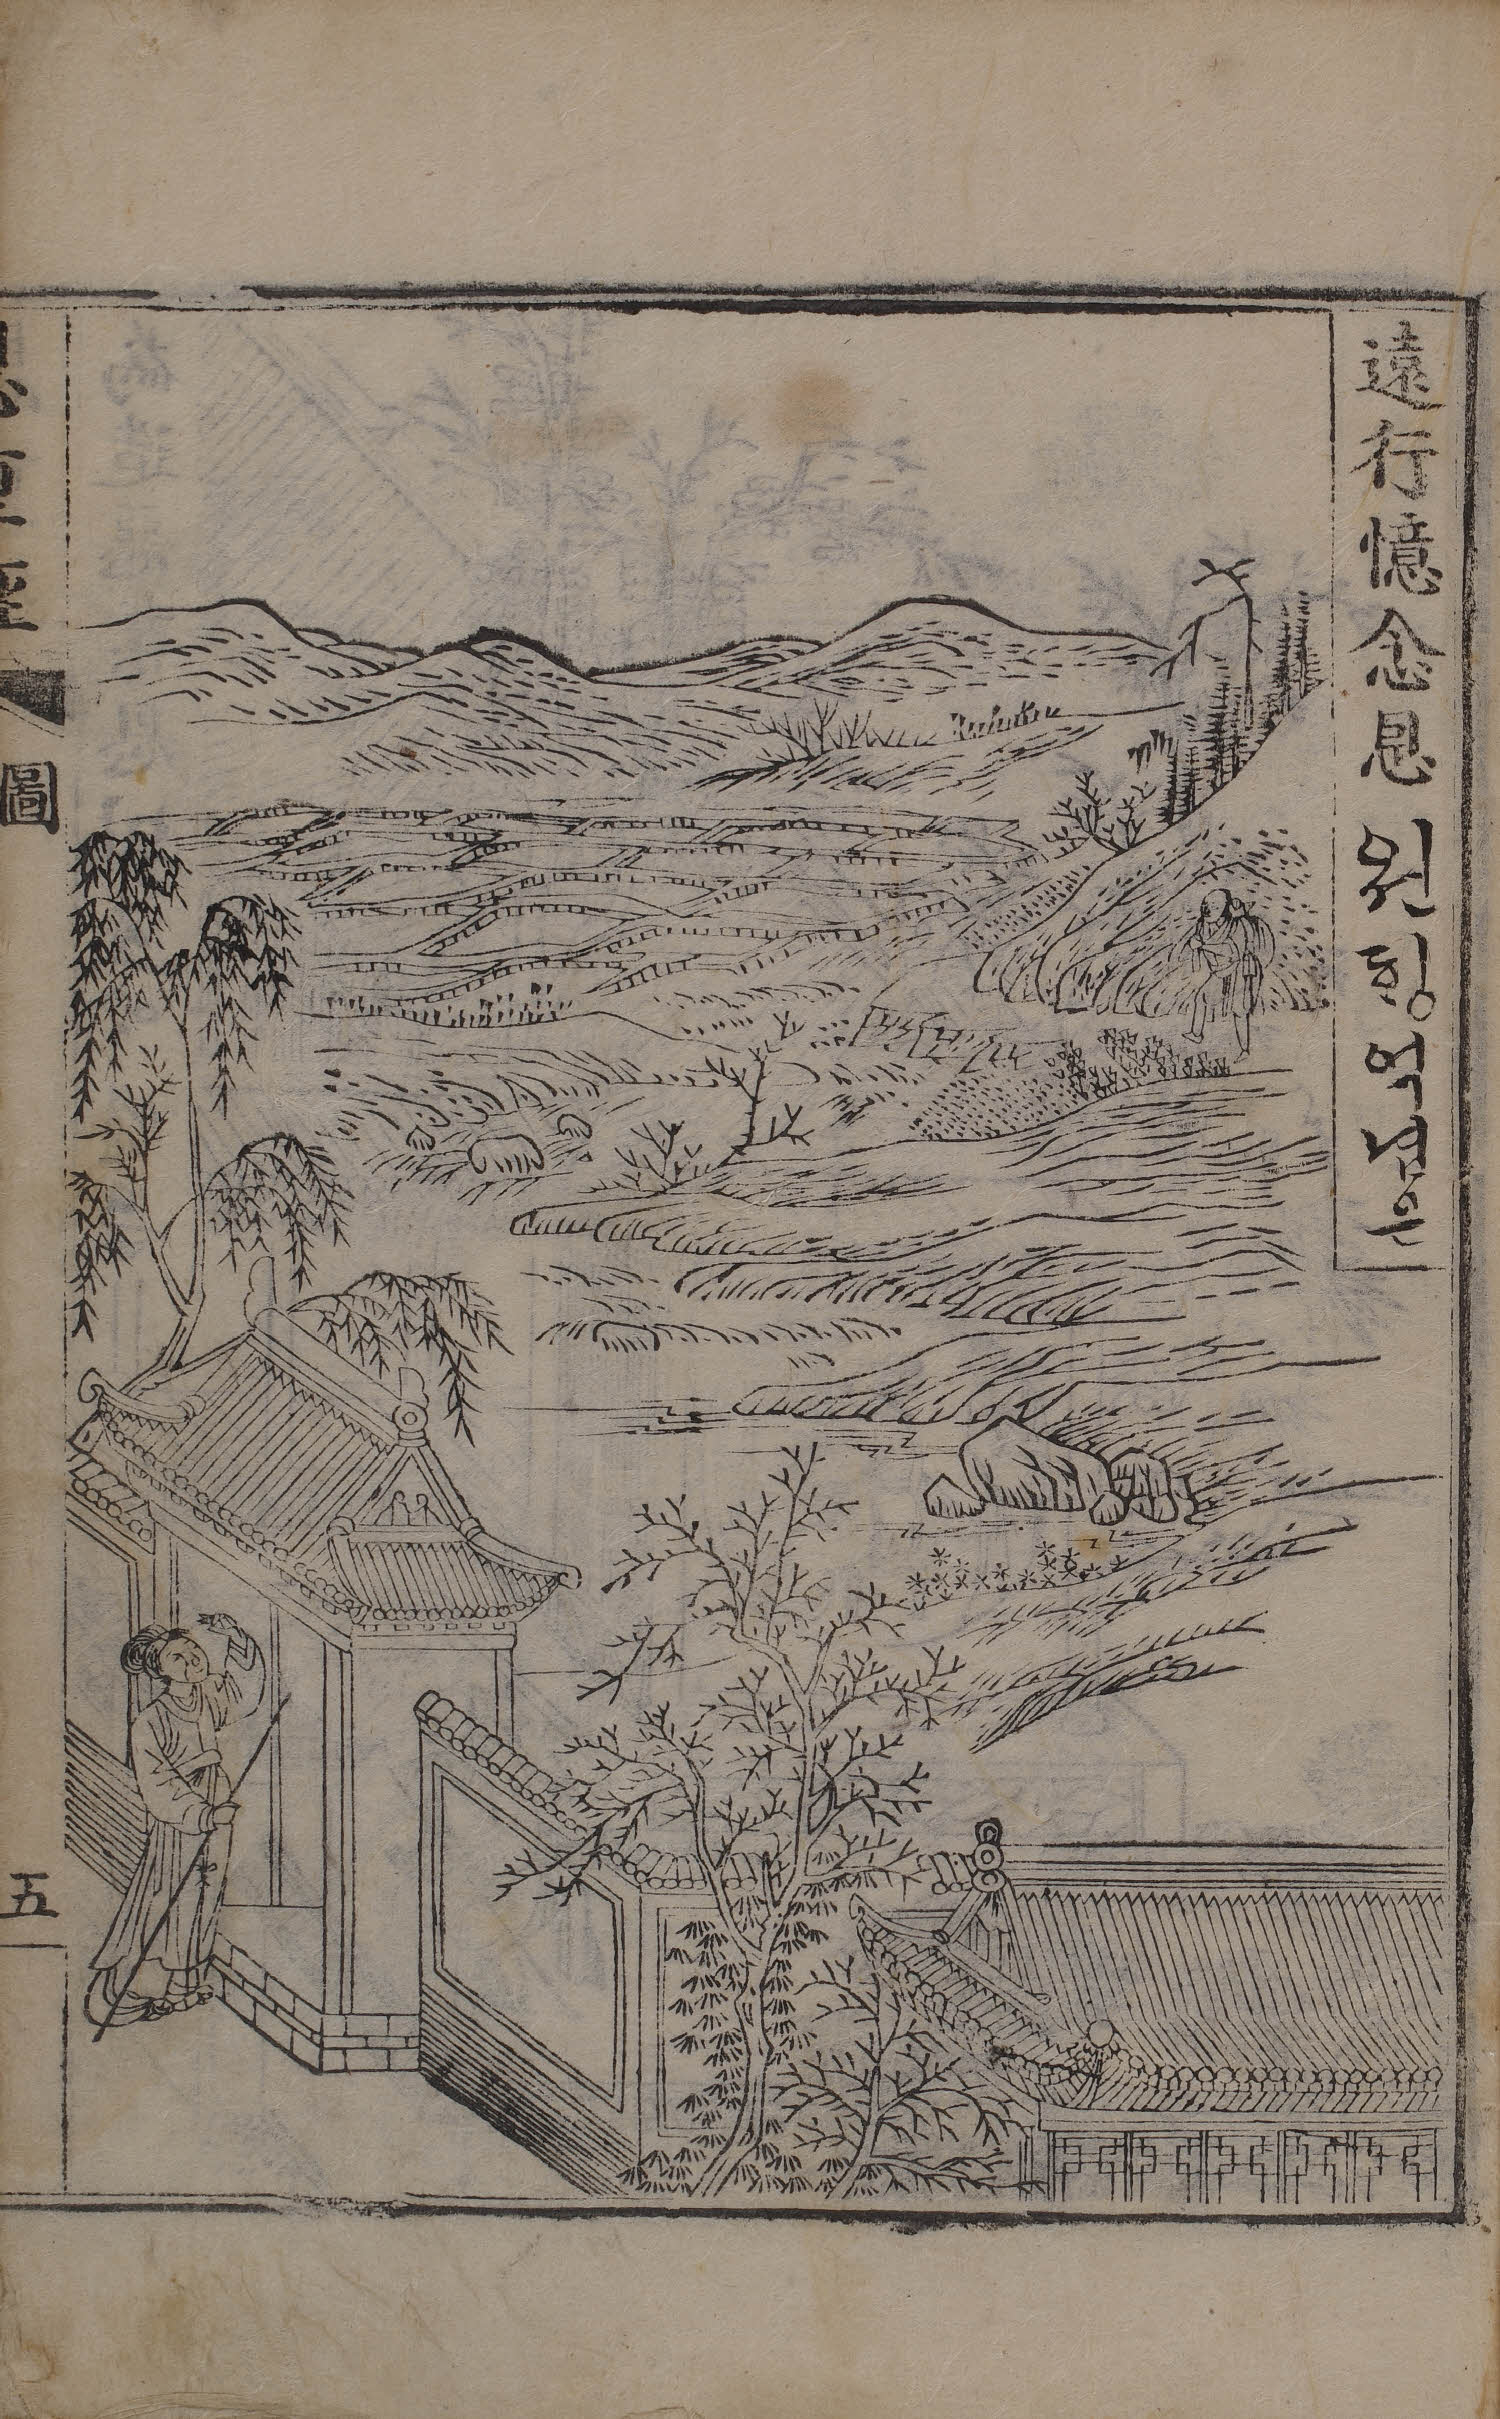 遠行憶念恩 원힝억념은
圖
五